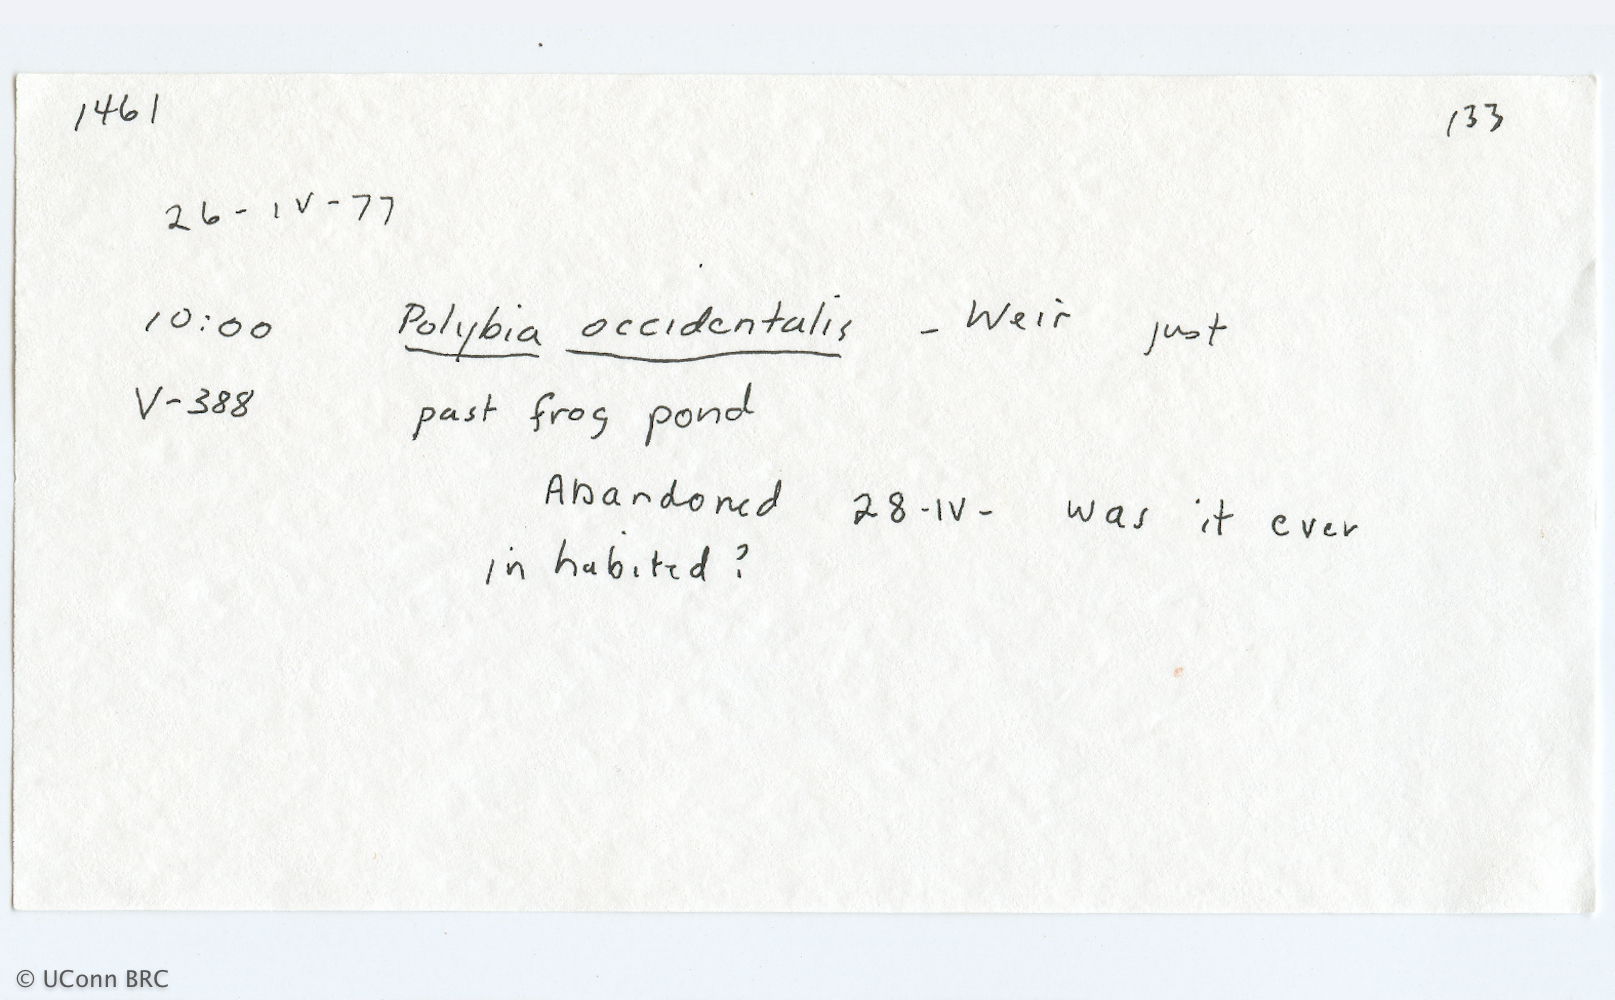 1461 133
26-IV-77
10:00 Polybia occidentalis - Weir just
V-388 past frog pond
Abandoned 28-IV- was it ever
inhabited?
© UConn BRC